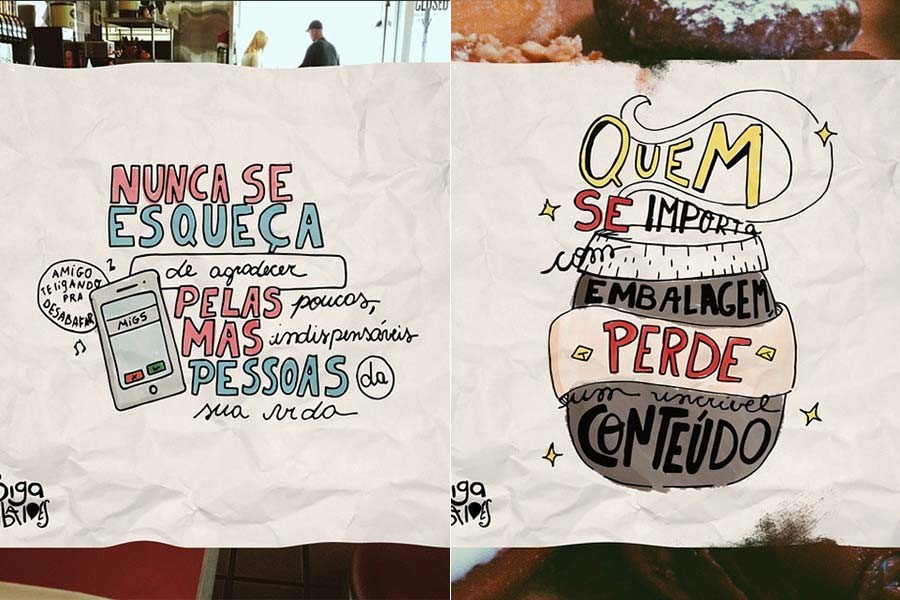 NUNCA SE
ESQUEÇA
de agradecer
AMIGO
TE LIGANDO
PRA
DESABAFAR
MiGS
PELAS poucas,
MAS indispensáveis
PESSOAS da
sua vida
CLOSED
QUEM
SE IMPORTA
com
EMBALAGEM,
PERDE
um incrível
CONTEÚDO